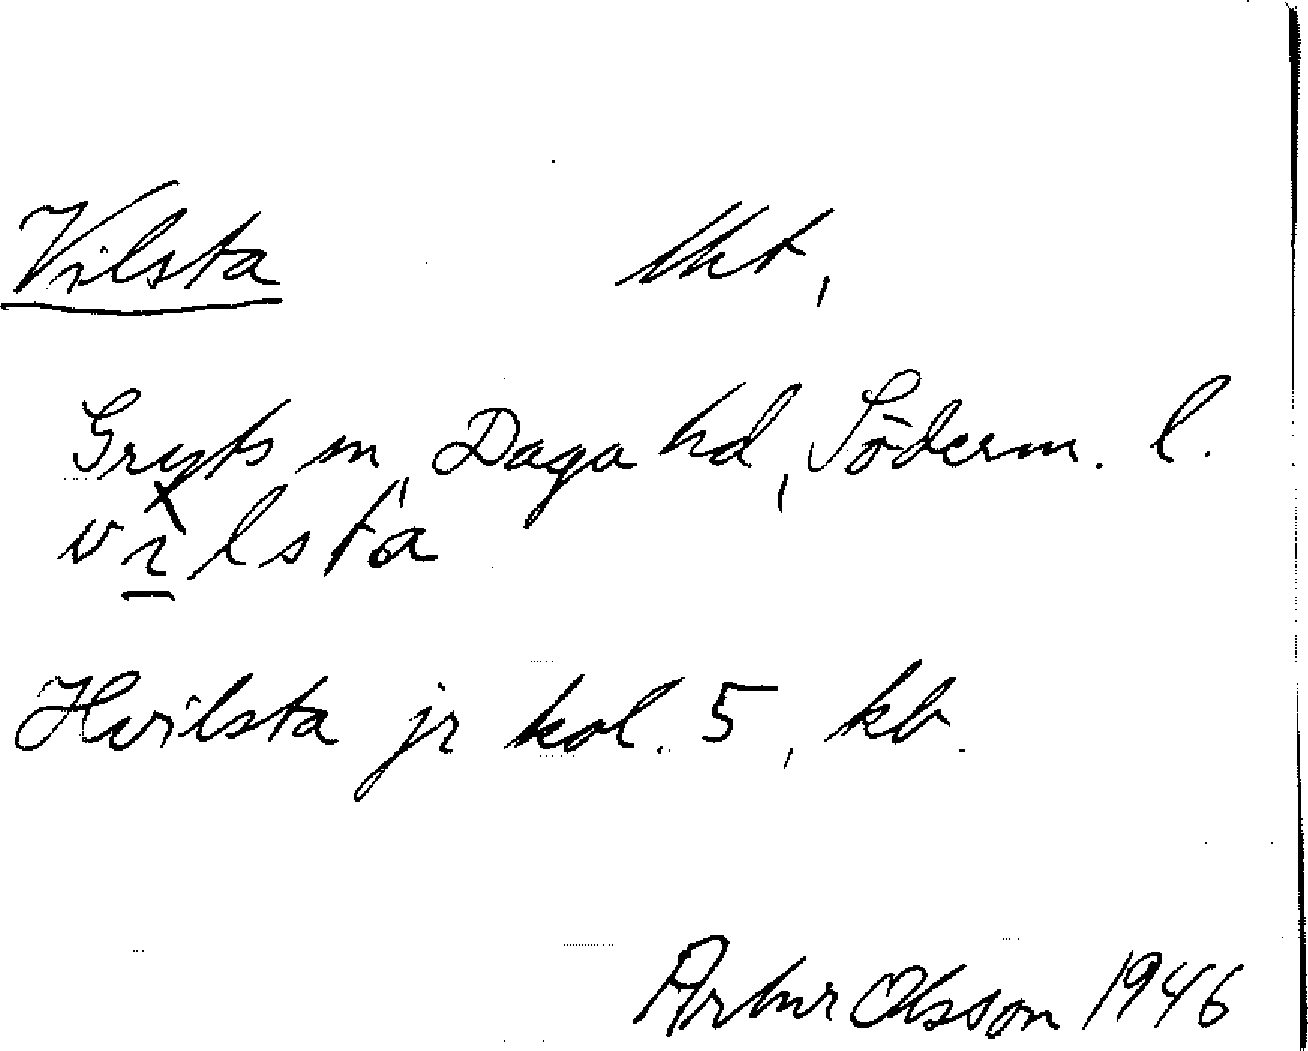 Vilsta lht,
Gryts sn, Daga hd, Söderm. l.
vilsta
Hvilsta jr kol. 5, kb.
Artur Olsson 1946